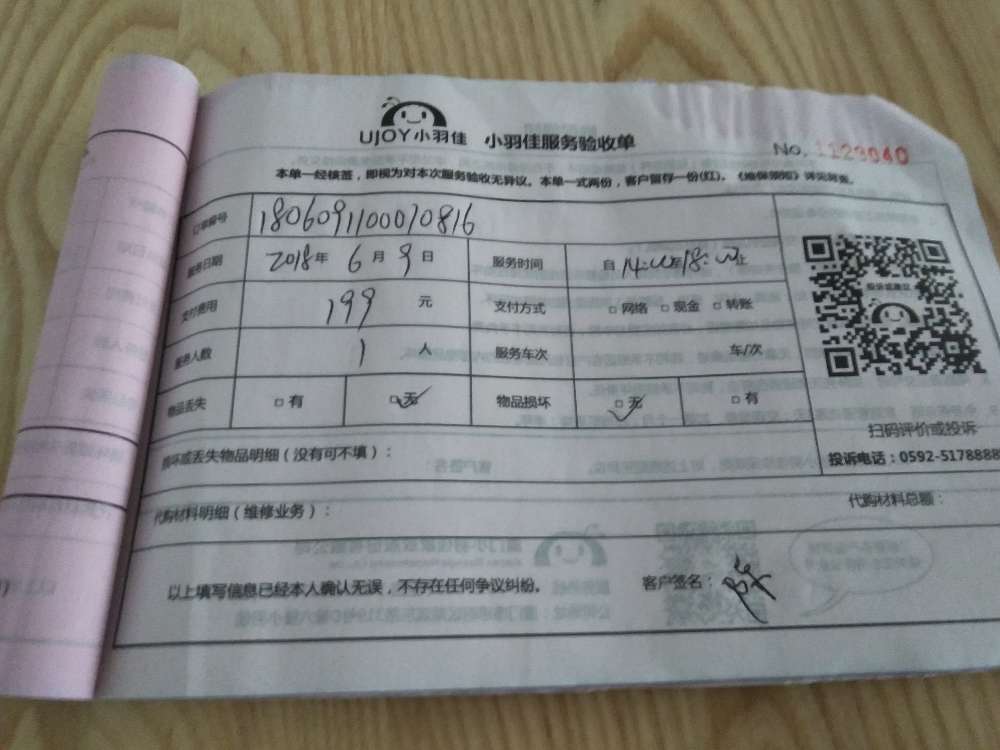 UJOY小羽佳 小羽佳服务验收单 No. 1129040
本单一经核签，即视为对本次服务验收无异议。本单一式两份，客户留存一份(红)。《维保须知》详见背面。
订单编号 1806091100070816
服务日期 2018年 6月 9日 服务时间 自 14:00至18:00止
支付费用 199 元 支付方式 □ 网络 □ 现金 □ 转账
服务人数 1 人 服务车次 车/次
物品丢失 □ 有 □ 无 物品损坏 □ 无 □ 有
扫码评价或投诉
损坏或丢失物品明细（没有可不填）： 投诉电话：0592-5178888
代购材料明细（维修业务）： 代购材料总额：
以上填写信息已经本人确认无误，不存在任何争议纠纷。 客户签名：